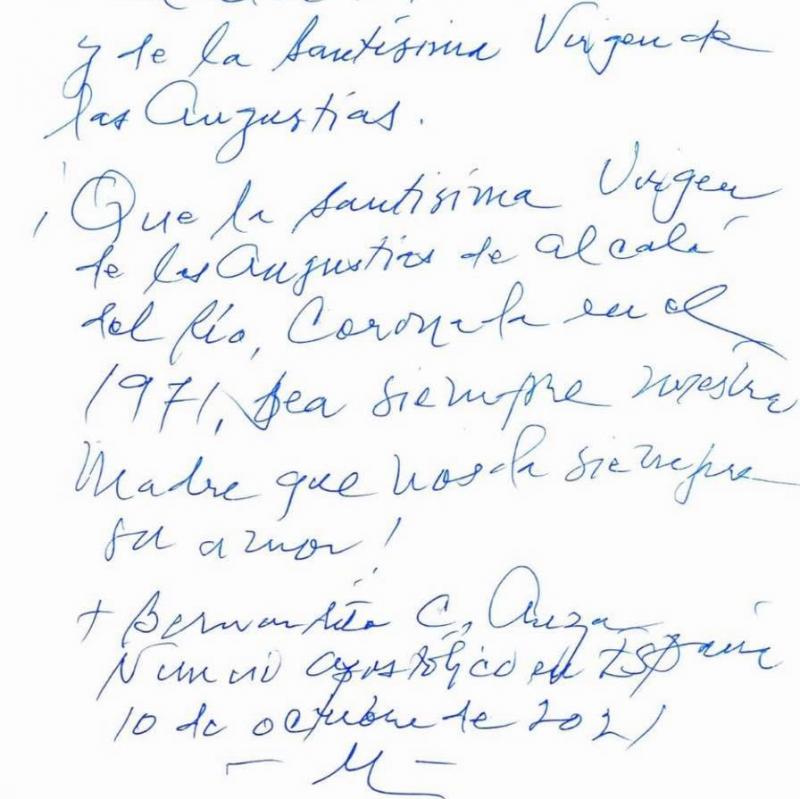 y de la Santísima Virgen de
las Angustias.
¡Que la Santísima Virgen
de las Angustias de Alcalá
del Río, Coronada en el
1971, sea siempre nuestra
Madre que nos da siempre
su amor!
+ Bernardito C. Auza
Nuncio Apostólico en España
10 de octubre de 2021